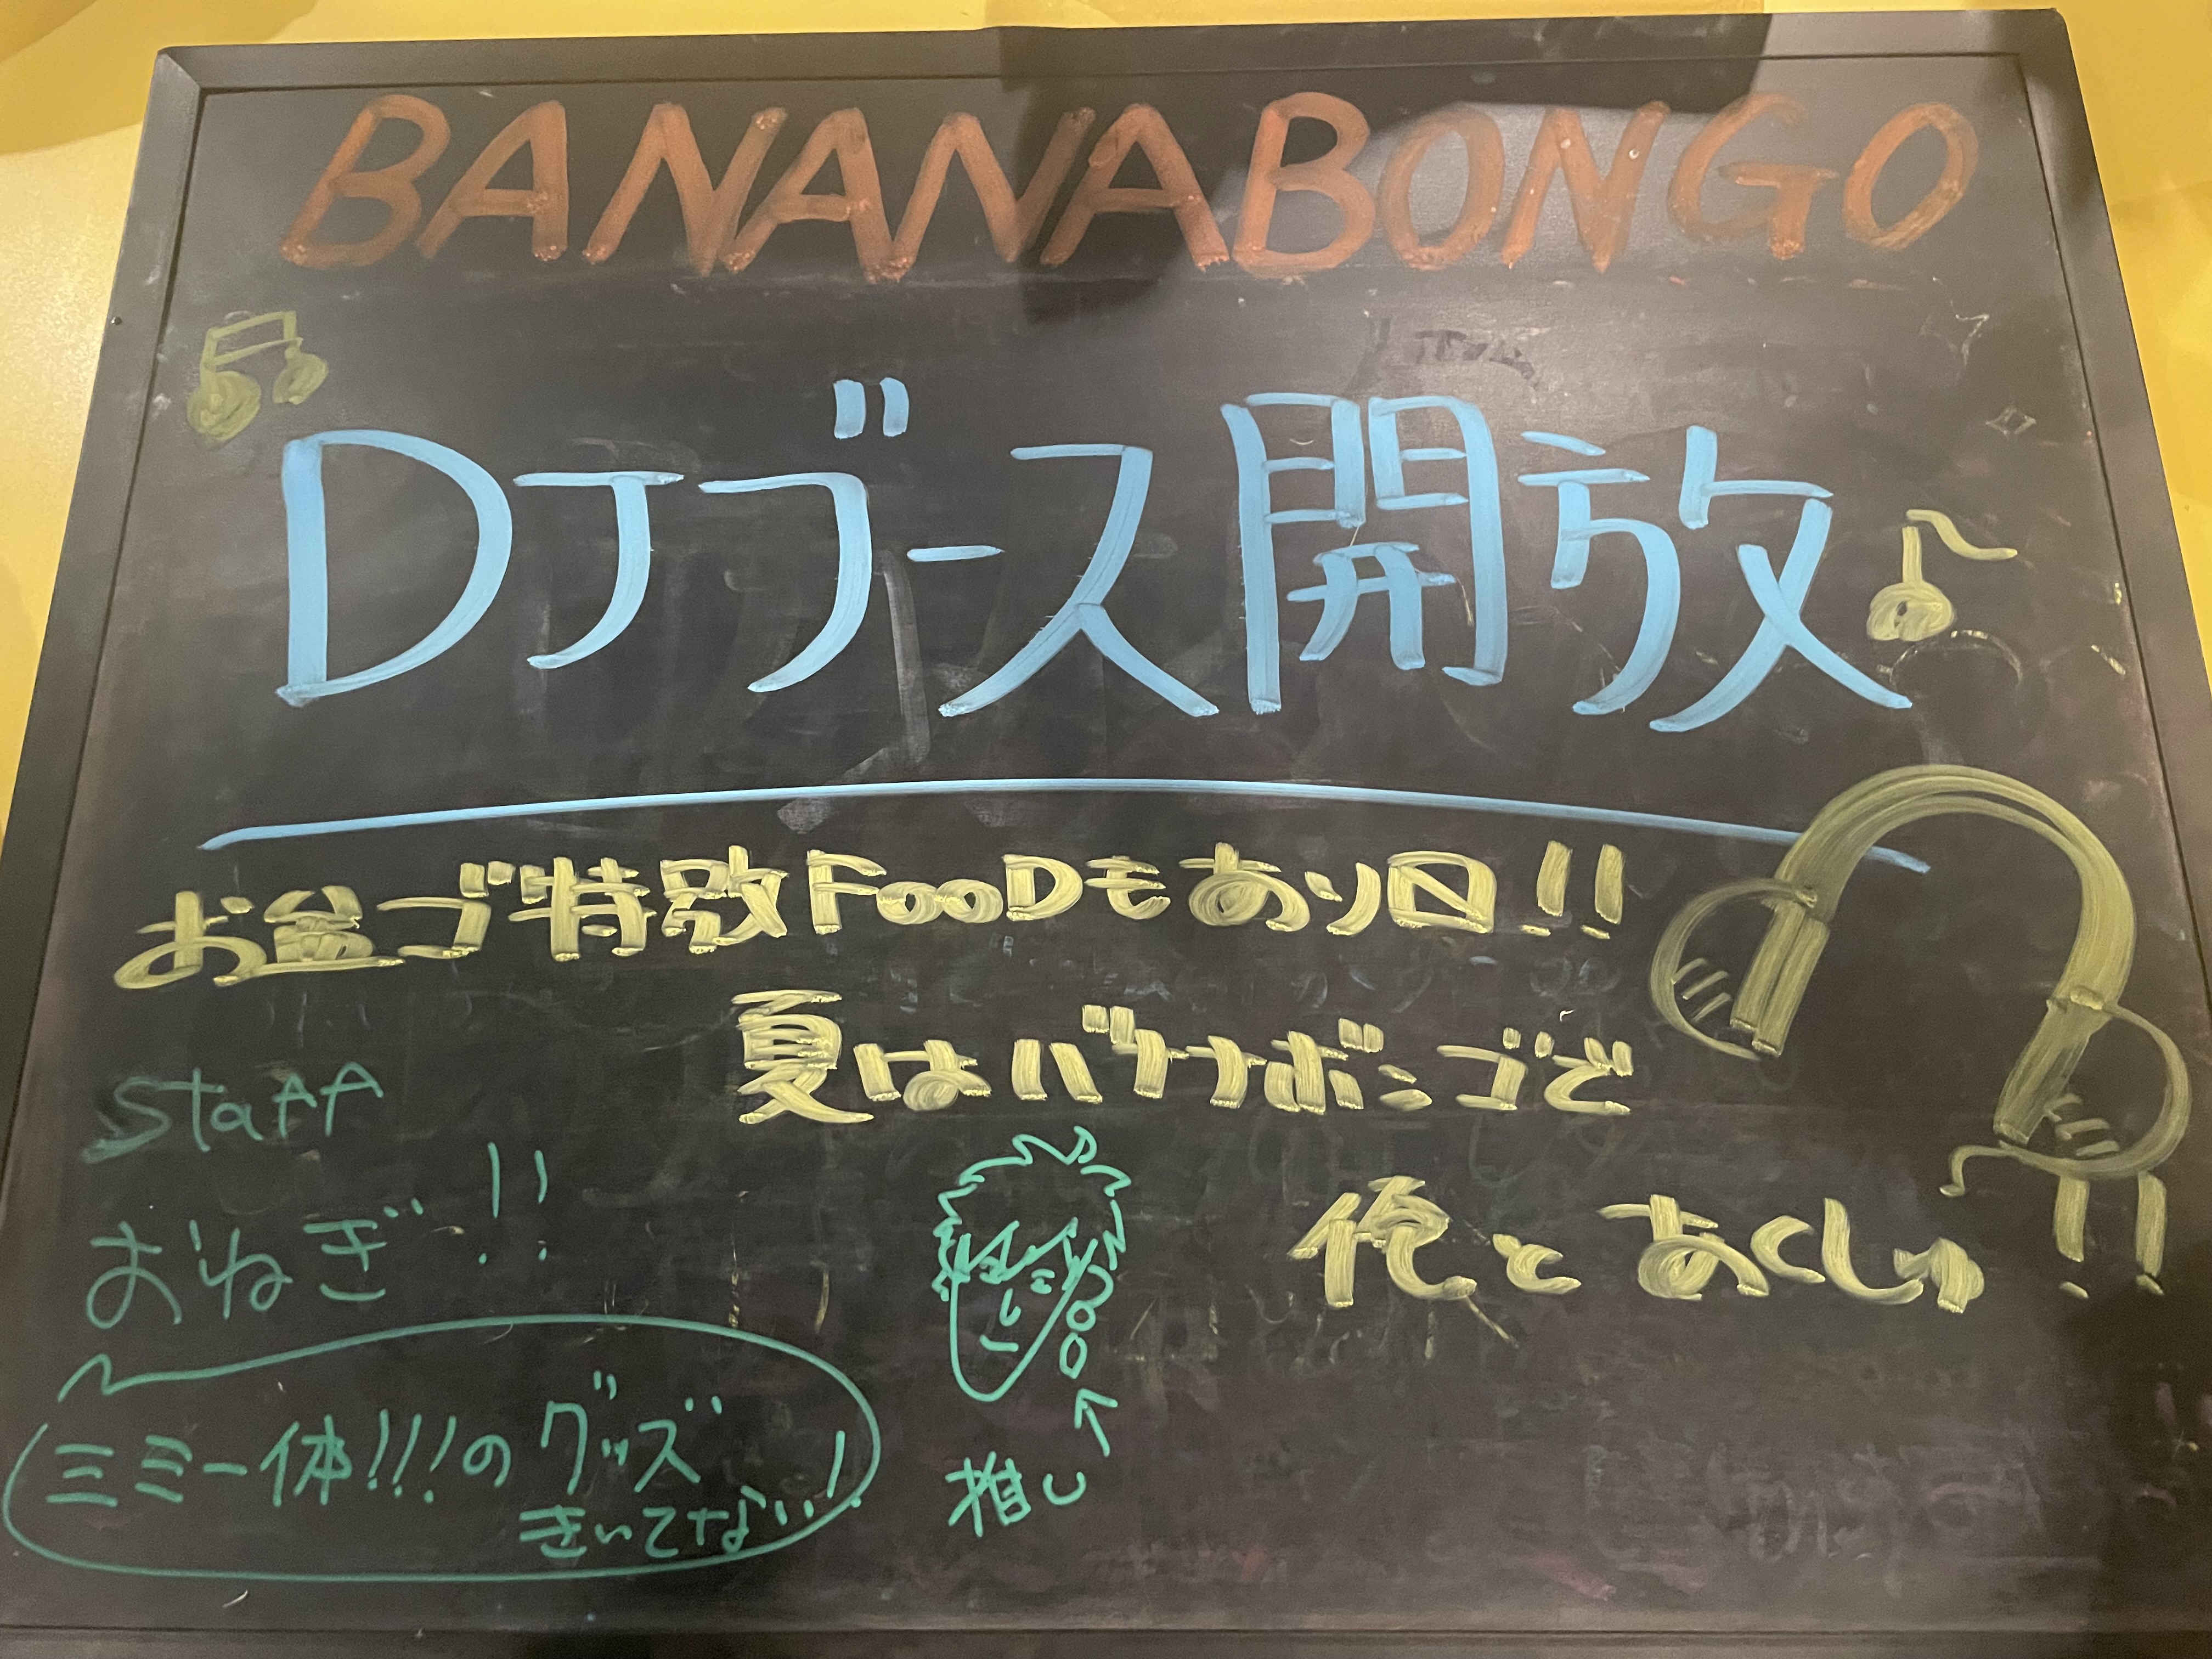 BANANABONGO
DJブース開放
お盆ゴ特効FooDもあり〼!!
夏はバナナボンゴで
俺とあくしゅ!!
Staff
おねぎ!!
推し
ミミー体!!!のグッズ
きいてない!!